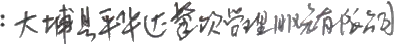 ：大埔县平华达餐饮管理服务有限公司